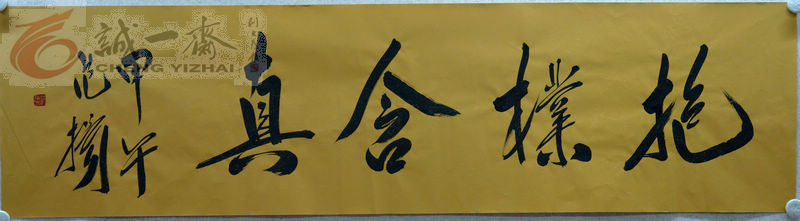 抱樸含真
甲午
誠一齋
CHENG YIZHAI